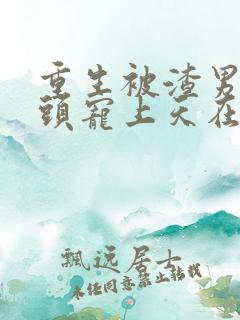 重生被渣男
頭寵上天在
飄远居士
未经同意禁止转载